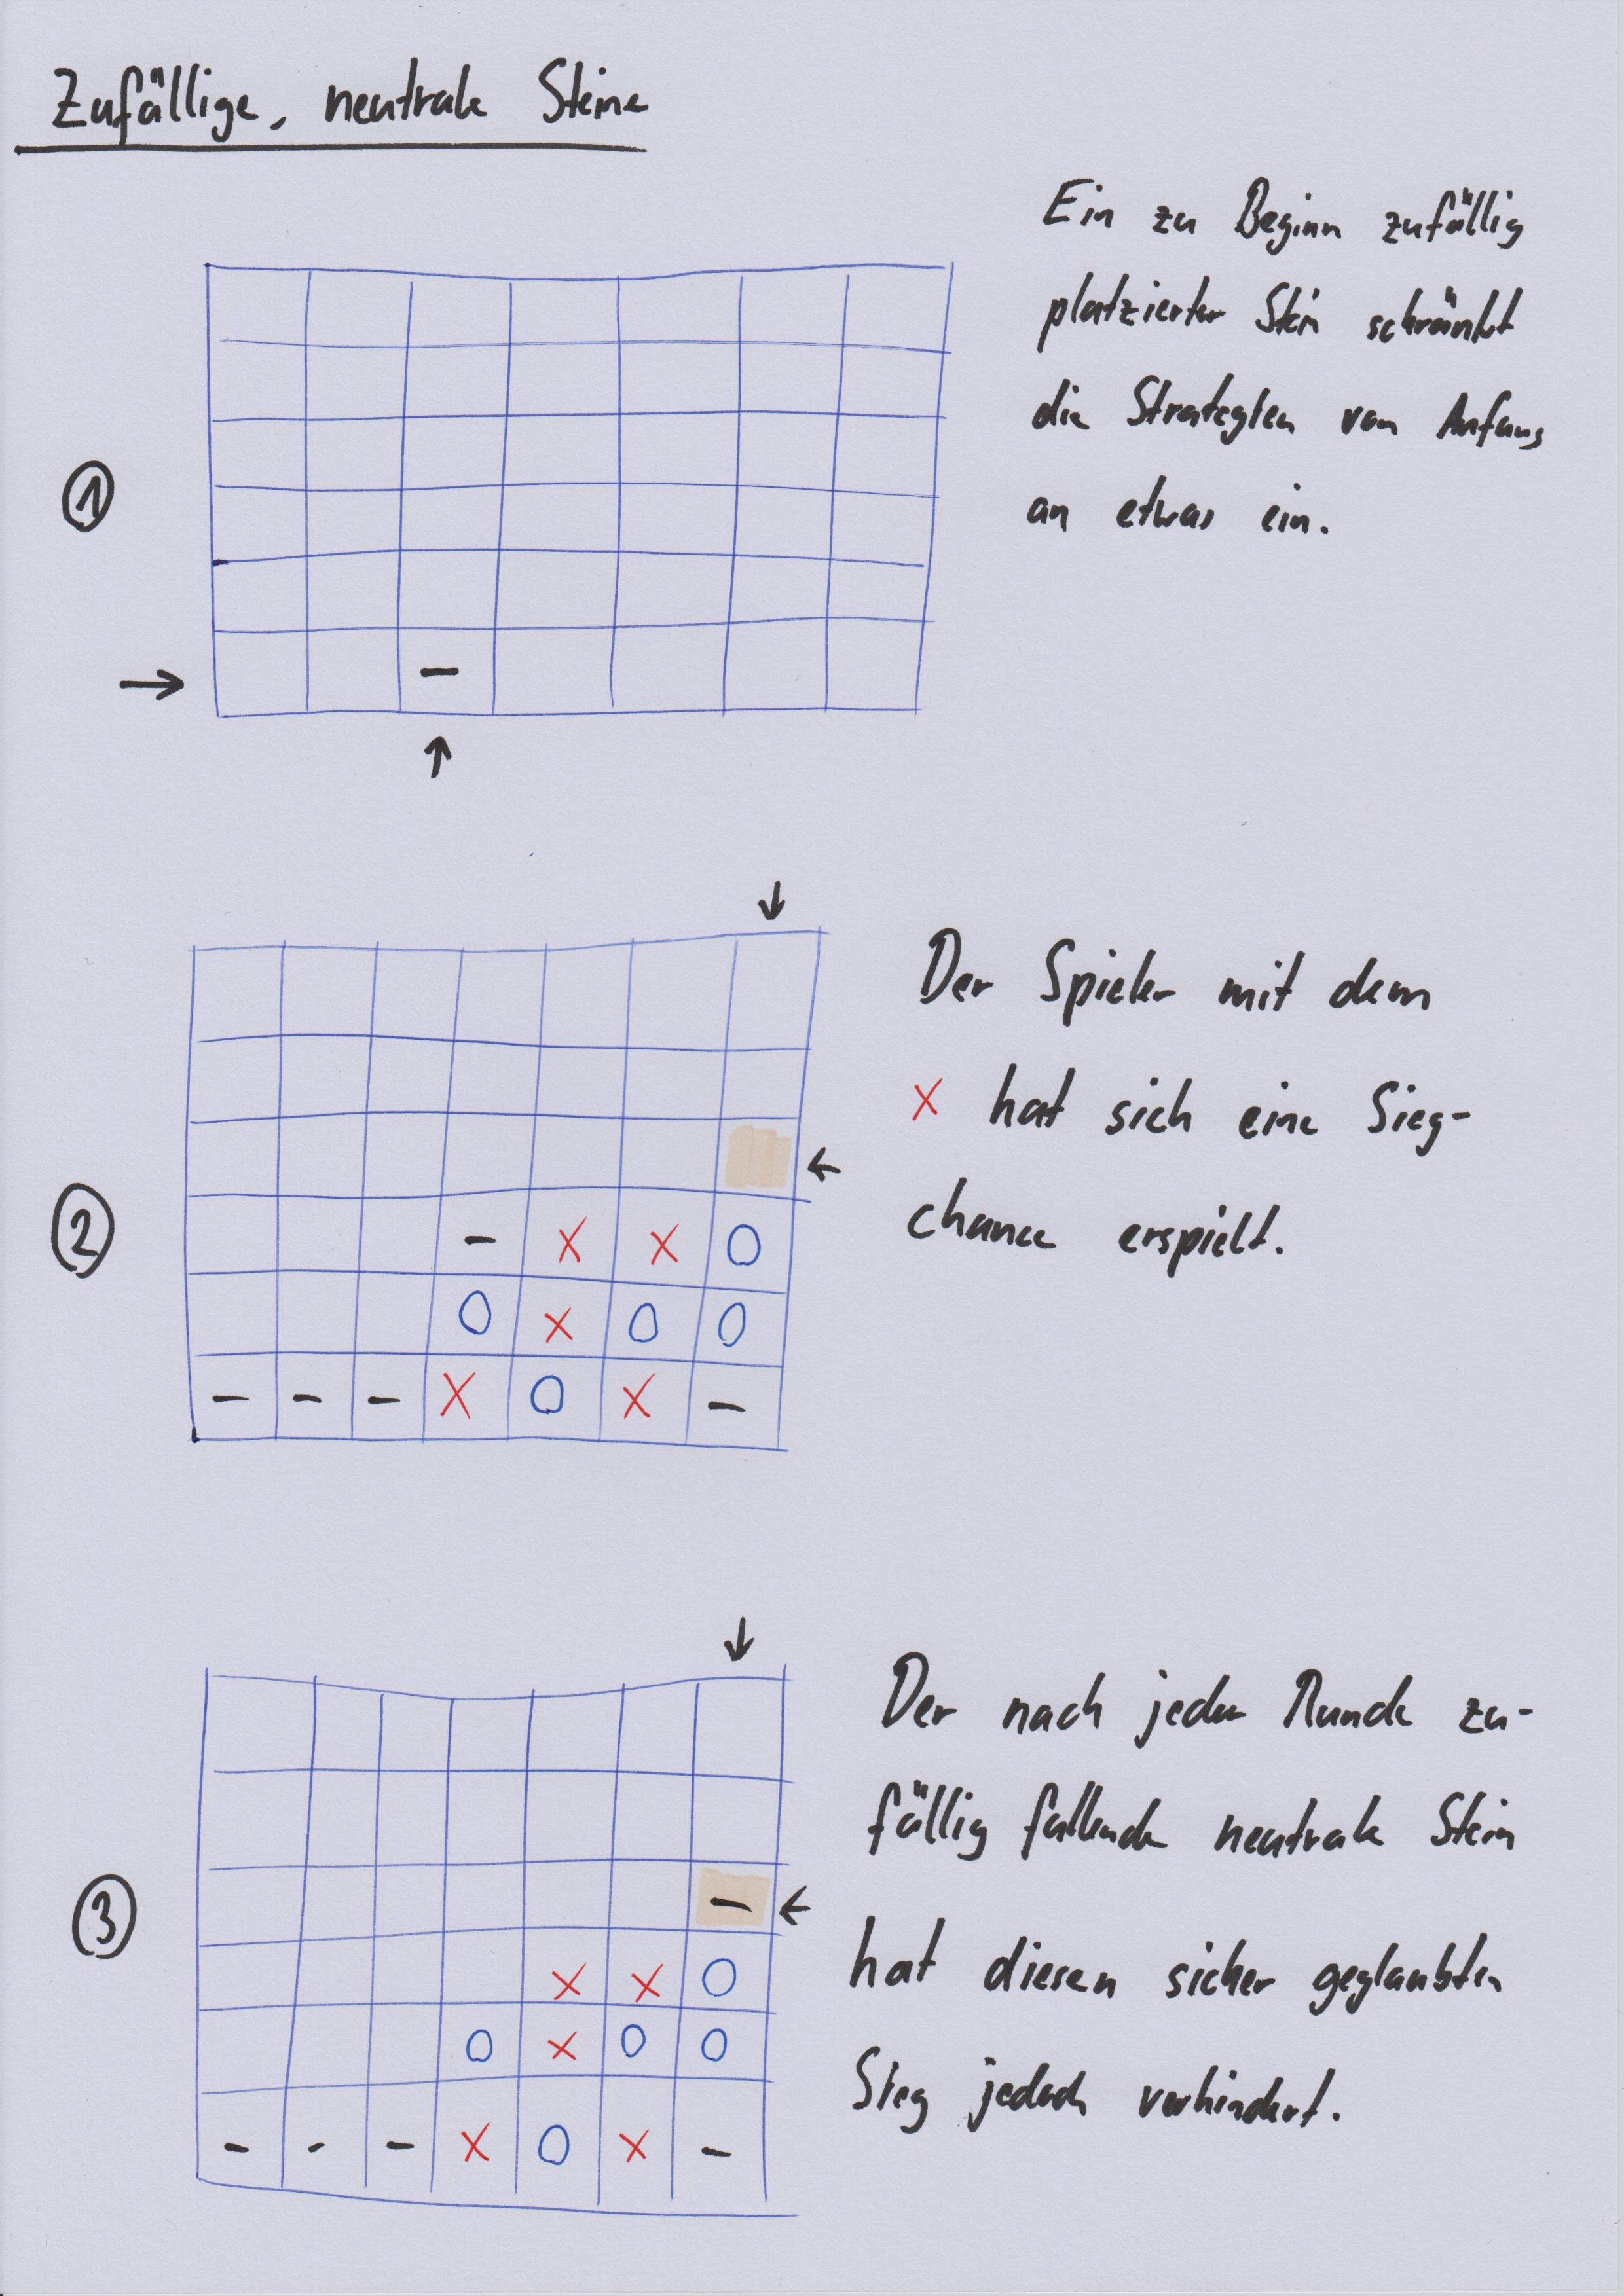 Zufällige, neutrale Steine
Ein zu Beginn zufällig
platzierter Stein schränkt
die Strategien von Anfang
an etwas ein.
1
→
–
↑
↓
Der Spieler mit dem
X hat sich eine Sieg-
chance erspielt.
←
2
– X X O
O X O O
– – – X O X –
↓
Der nach jeder Runde zu-
fällig fallende neutrale Stein
hat diesen sicher geglaubten
Sieg jedoch verhindert.
3
– ←
X X O
O X O O
– – – X O X –